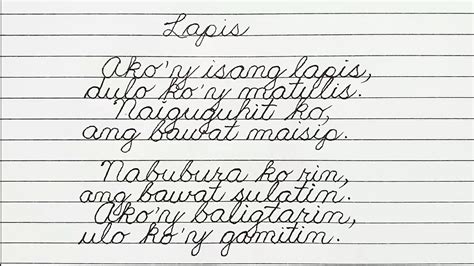 Lapis
Ako'y isang lapis,
dulo ko'y matulis.
Naiguguhit ko,
ang bawat maisip.
Nabubura ko rin,
ang bawat sulatin.
Ako'y baligtarin,
ulo ko'y gamitin.